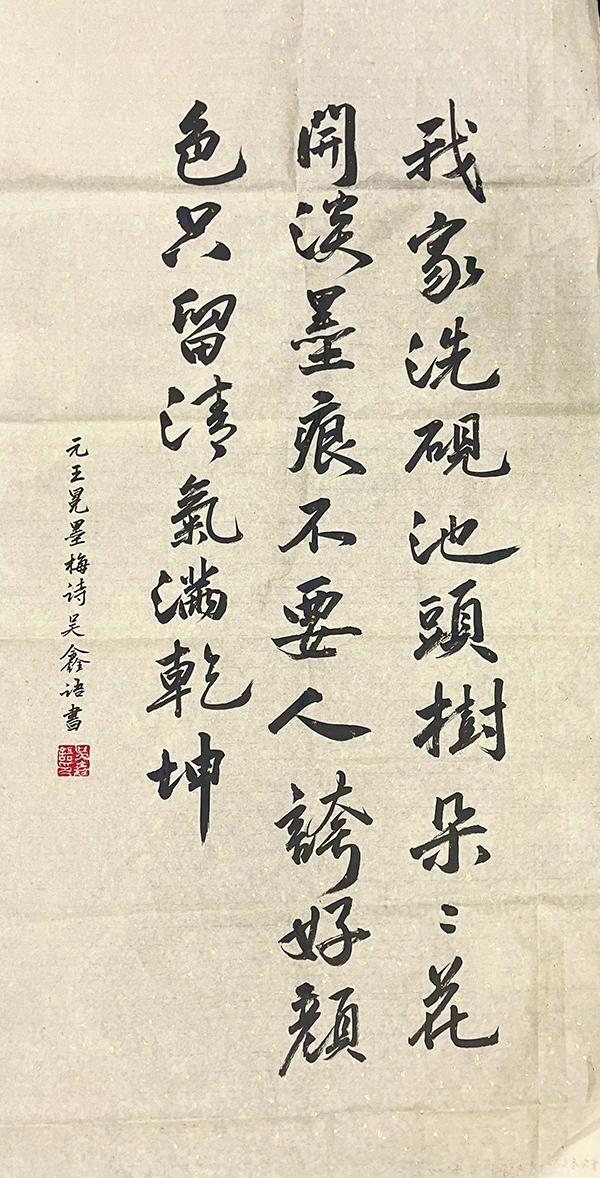 我家洗硯池頭樹朵〻花
開淡墨痕不要人誇好顔
色只留清氣滿乾坤
元王冕墨梅诗吴鑫语書